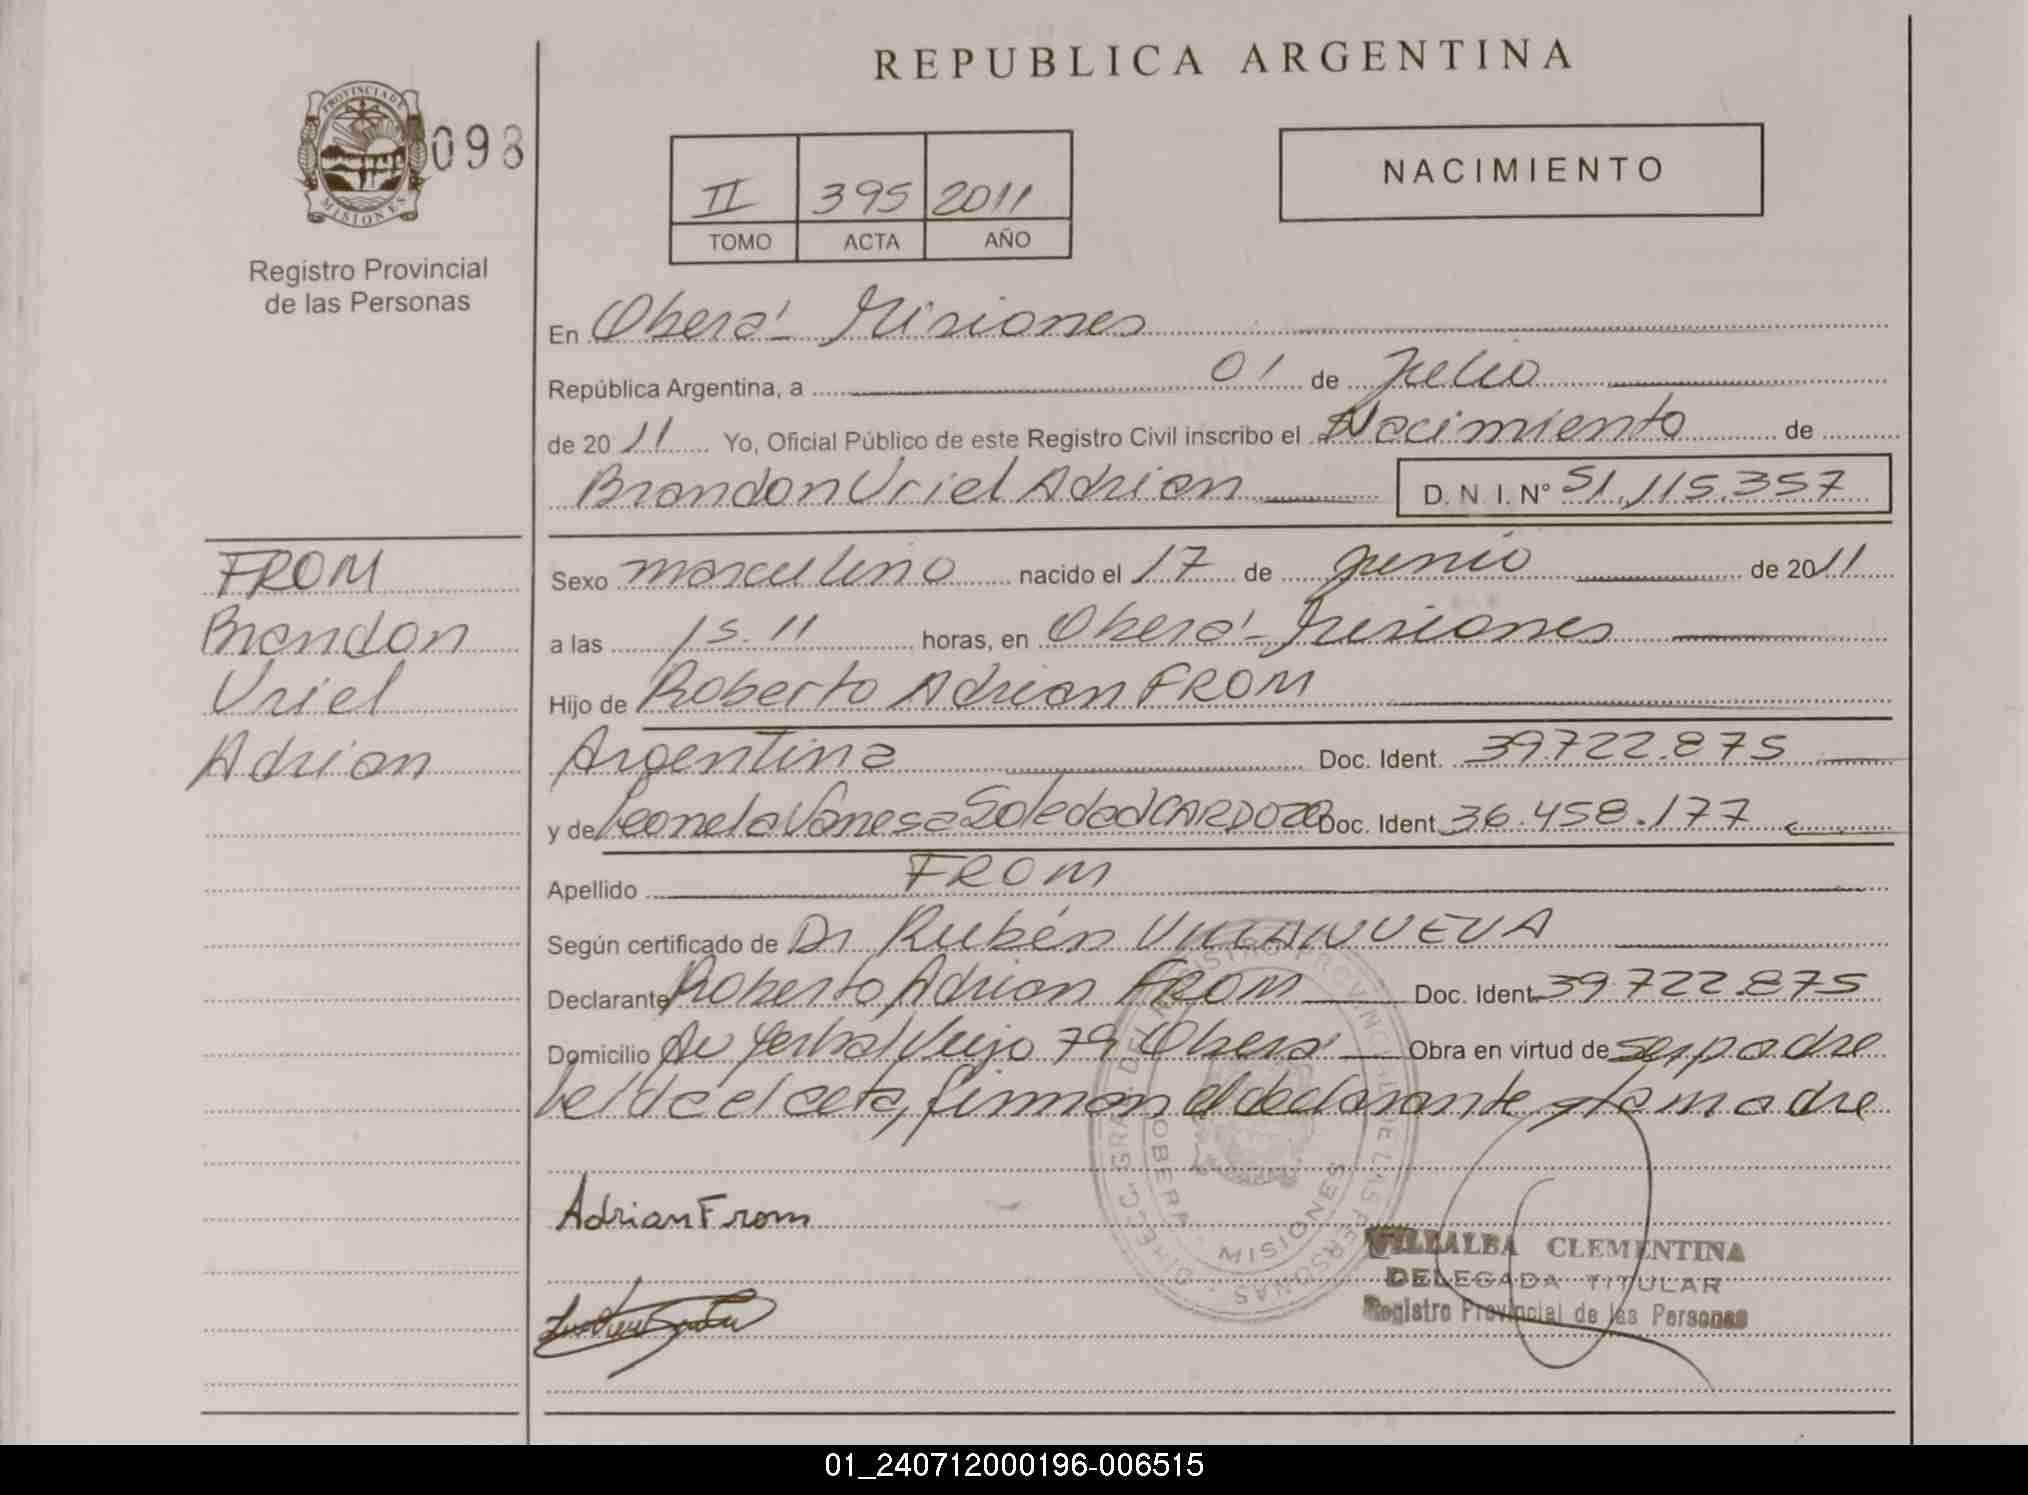 REPUBLICA ARGENTINA
PROVINCIA DE MISIONES
098
Registro Provincial
de las Personas
II 395 2011
TOMO ACTA AÑO
NACIMIENTO
En Oberá - Misiones
República Argentina, a 01 de Julio
de 2011 Yo, Oficial Público de este Registro Civil inscribo el Nacimiento de
Brandon Uriel Adrian D. N. I. Nº 51.115.357
FROM
Brandon
Uriel
Adrian
Sexo masculino nacido el 17 de junio de 2011
a las 15.11 horas, en Oberá - Misiones
Hijo de Roberto Adrian FROM
Argentina Doc. Ident. 39.722.875
y de Leonela Vanesa Soledad CARDOZO Doc. Ident. 36.458.177
Apellido FROM
Según certificado de Dr Rubén VILLANUEVA
Declarante Roberto Adrian FROM Doc. Ident. 39.722.875
Domicilio Av Yerbal Viejo 79 Oberá Obra en virtud de ser padre
leída el acta, firman el declarante y la madre
Adrian From
DIRECC. GRAL. DEL REGISTRO PROVINCIAL DE LAS PERSONAS
OBERA - MISIONES
VILLALBA CLEMENTINA
DELEGADA TITULAR
Registro Provincial de las Personas
01_240712000196-006515